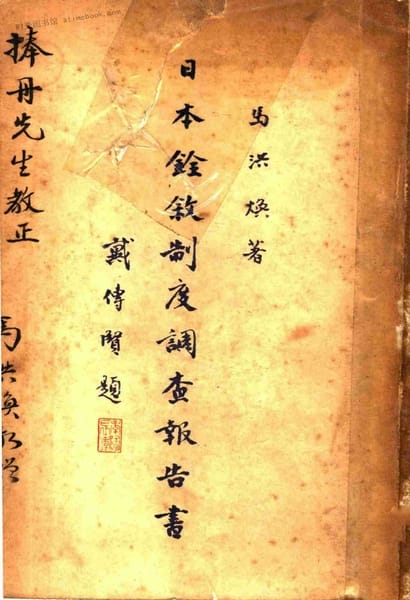 时光图书馆 atimebook.com
馬洪煥著
日本銓敘制度調查報告書
戴傳賢題
捧丹先生教正
馬洪煥